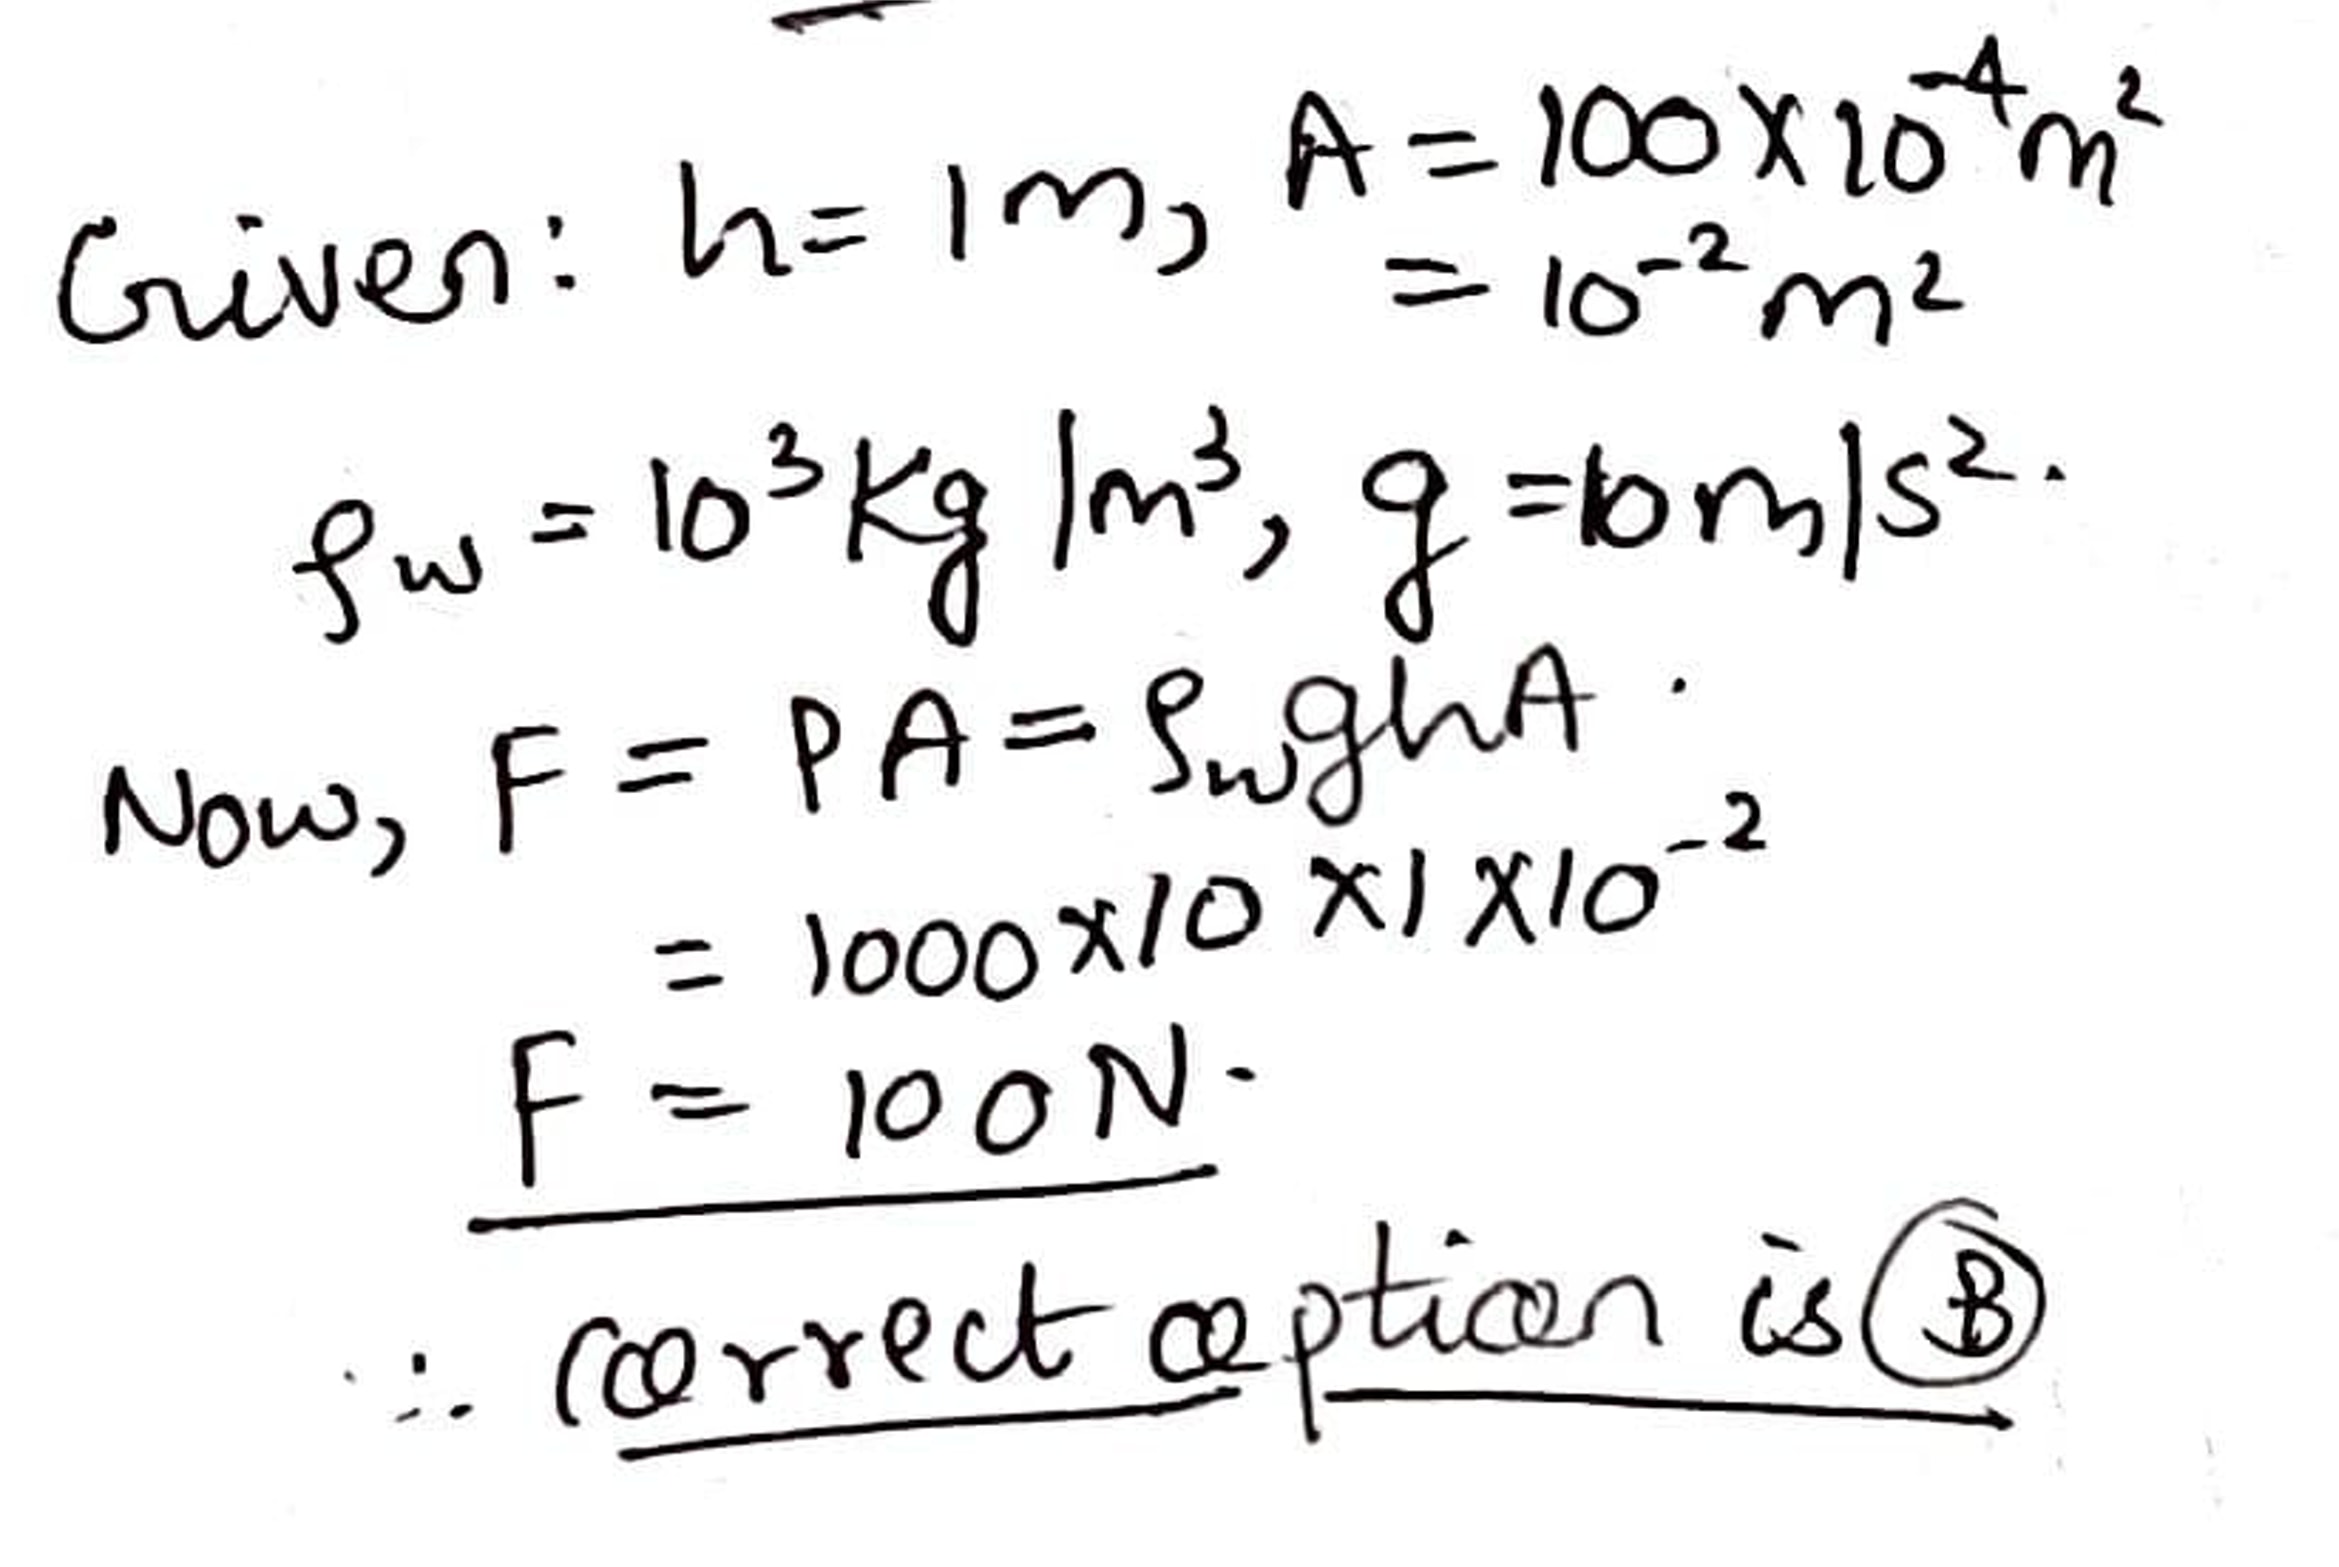 Given: h = 1m, A = 100 × 10⁻⁴ m²
= 10⁻² m²
ρw = 10³ Kg/m³, g = 10 m/s².
Now, F = PA = ρwghA.
= 1000 × 10 × 1 × 10⁻²
F = 100 N.
∴ Correct option is B